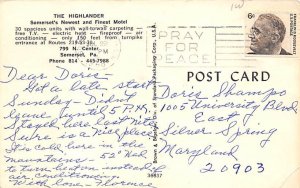 THE HIGHLANDER
Somerset's Newest and Finest Motel
30 spacious units with wall-to-wall carpeting —
free T.V. — electric heat — fireproof — air
conditioning — only 150 feet from turnpike
entrance of Routes 219-53-31.
799 N. Center
Somerset, Pa.
Phone 814 - 445-7988
PM
PRAY
FOR
PEACE
6¢
POST CARD
Dear Doris
Got a late start
Sunday. Didn't
leave until 5 P.M.
Stayed here last nite
here is a nice place
It's cold here in the
mountains - 52° Had
to turn heat on instead of
air conditioning.
With love, Florence
Doris Shampo
1005 University Blvd
East
Silver Spring
Maryland
20903
36857